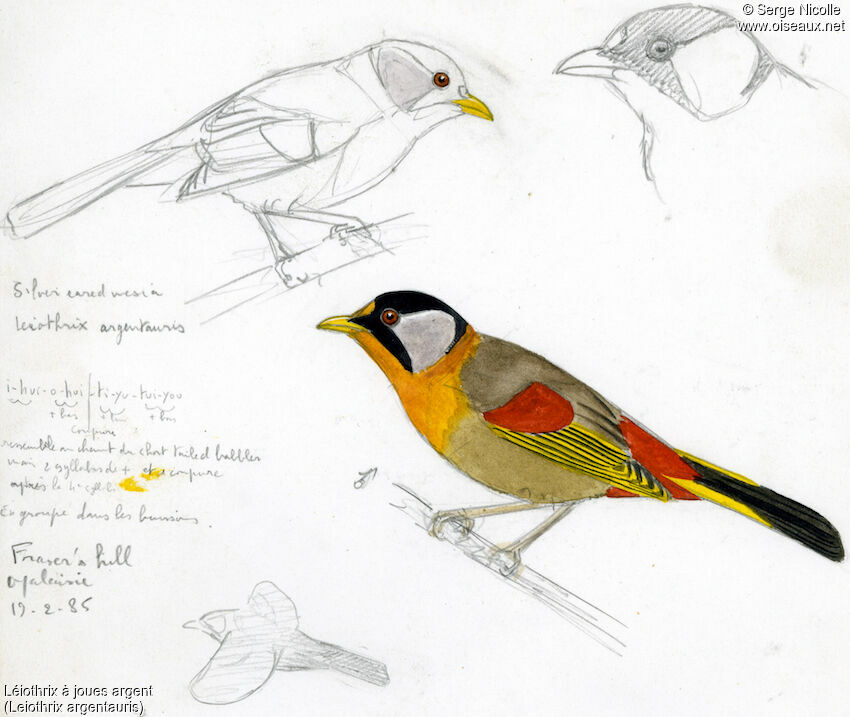 © Serge Nicolle
www.oiseaux.net
Silver eared mesia
leiothrix argentauris
i-hui-o-hui ti-yu-tui-you
+ bas + bas
coupure
ressemble au chant du short tailed babbler
mais 2 syllabes de + et coupure
après la 4e
En groupe dans les buissons.
Fraser's hill
Malaisie
19-2-85
Léiothrix à joues argent
(Leiothrix argentauris)